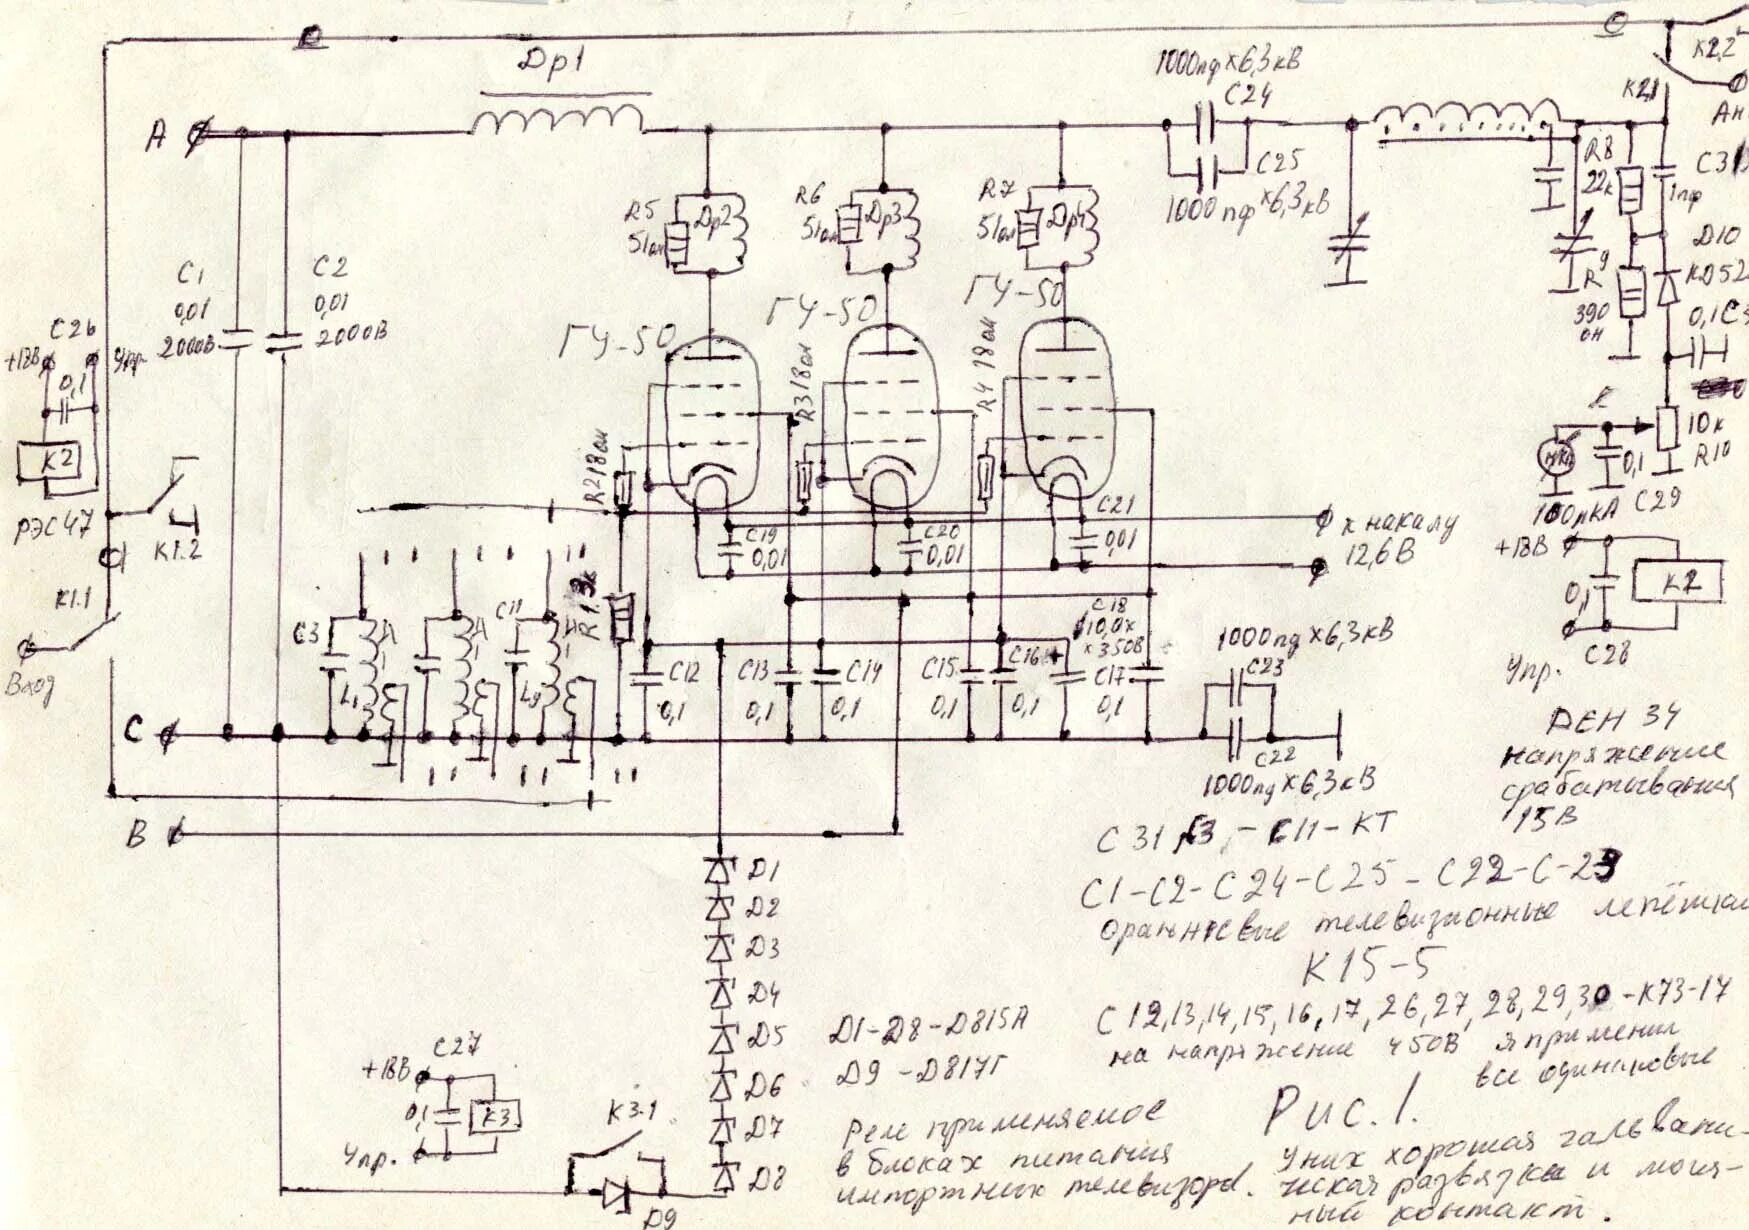 Др1
1000пф×6,3кВ
C24
C25
1000 пф ×6,3кВ
К2.2
К2.1
Ан
A
R5
51ом
Др2
R6
51ом
Др3
R7
51ом
Др4
R8
22к
1пф
D10
R9
390
ом
0,1
C1
0,01
2000В
C2
0,01
2000В
ГУ-50
ГУ-50
ГУ-50
C26
+18В
Упр.
0,1
К2
РЭС47
К1.2
К1.1
Вход
R2 18ом
R3 18ом
R4 18ом
10к
R10
0,1
C29
100мкА
C19
0,01
C20
0,01
C21
0,01
к накалу
12,6В
+18В
0,1
К2
C28
Упр.
C3
L1
C11
L9
R1 3к
C12
0,1
C13
0,1
C14
0,1
C15
0,1
C16
0,1
C18
10,0×
×350В
C17
0,1
1000пф×6,3кВ
C23
C22
1000пф×6,3кВ
C
B
DEH 34
напряжение
срабатывания
15В
C31, C3 - C11 - КТ
C1-C2-C24-C25-C22-C-23
оранжевые телевизионные
К15-5
C12,13,14,15,16,17,26,27,28,29,30-К73-17
на напряжение 450В я применил
все одинаковые
D1
D2
D3
D4
D5
D6
D7
D8
D1-D8-D815A
D9-D817Г
C27
+18В
0,1
К3
Упр.
К3.1
D9
Реле применяемое
в блоках питания
импортных телевизоров.
Рис.1.
У них хорошая гальвани-
ческая развязка и мощ-
ный контакт.